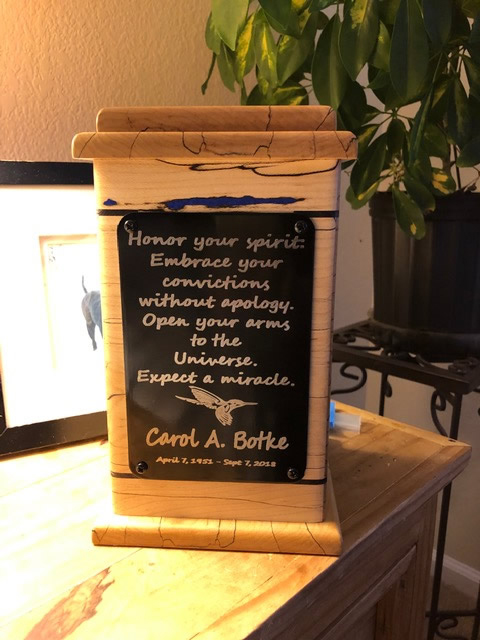 Honor your spirit:
Embrace your
convictions
without apology.
Open your arms
to the
Universe.
Expect a miracle.
Carol A. Botke
April 7, 1951 - Sept 7, 2018